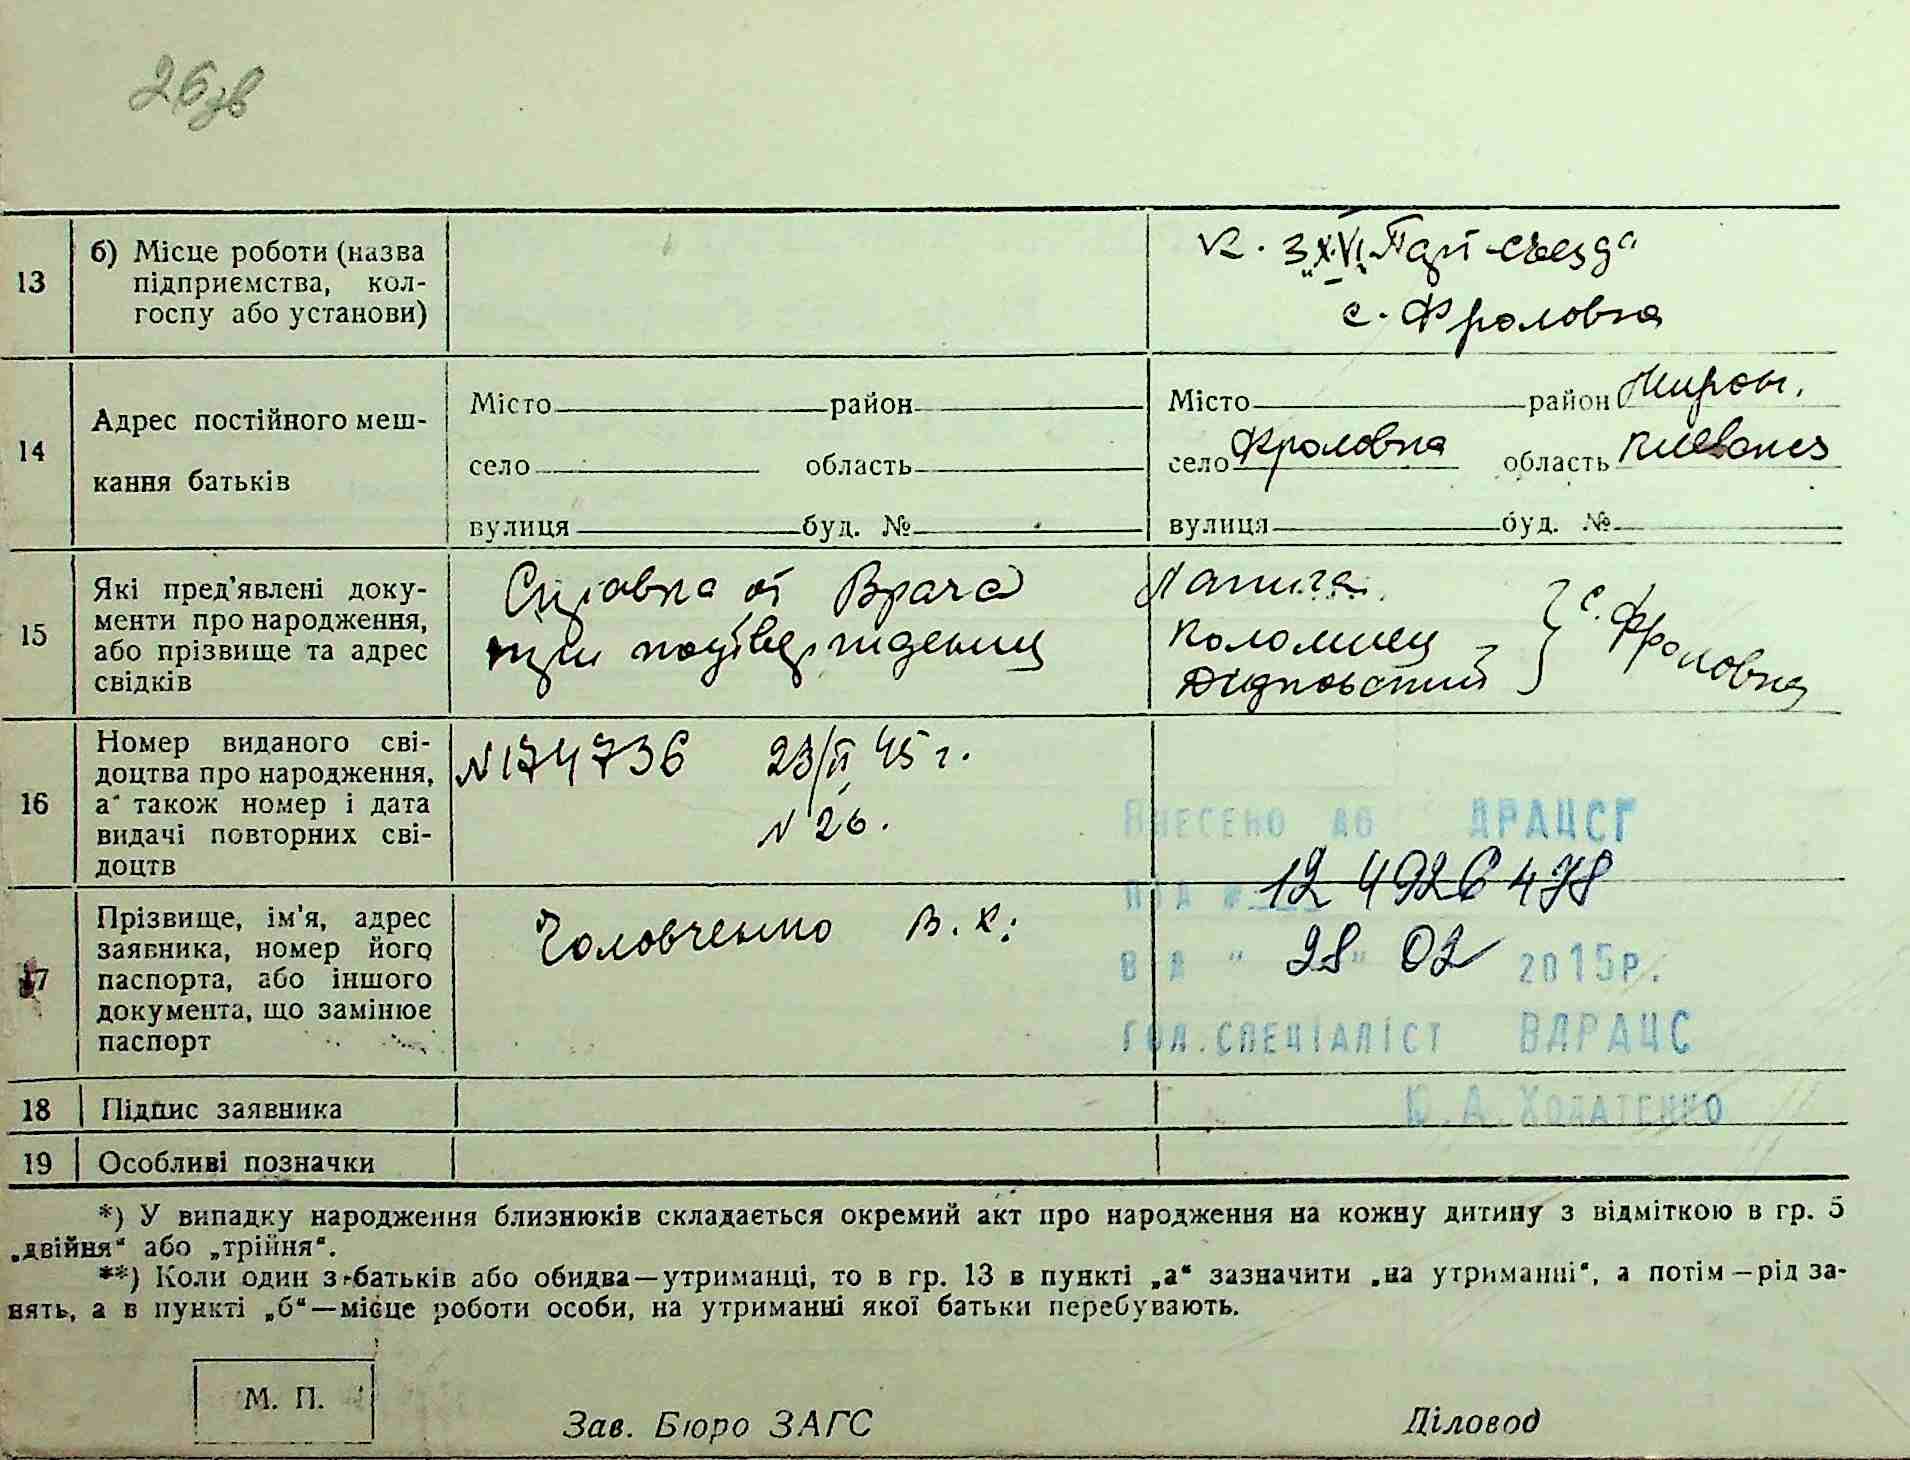 26зв
13
б) Місце роботи (назва
підприємства, кол-
госпу або установи)
к. з „XVI Парт съезд"
с. Фроловка
14
Адрес постійного меш-
кання батьків
Місто район
село область
вулиця буд. №
Місто район Мирон.
село Фроловка область Киевская
вулиця буд. №
15
Які пред'явлені доку-
менти про народження,
або прізвище та адрес
свідків
Справка от Врача
при подтверждении
Коломиец
с. Фроловка
16
Номер виданого сві-
доцтва про народження,
а також номер і дата
видачі повторних сві-
доцтв
N 174736 23/II 45 г.
N 26.
Внесено до ДРАЦСГ
під № 12 4926478
від " 28 " 02 2015р.
гол.спеціаліст ВДРАЦС
17
Прізвище, ім'я, адрес
заявника, номер його
паспорта, або іншого
документа, що замінює
паспорт
Головченко В. К.
18 Підпис заявника
19 Особливі позначки
*) У випадку народження близнюків складається окремий акт про народження на кожну дитину з відміткою в гр. 5
„двійня" або „трійня".
**) Коли один з батьків або обидва—утриманці, то в гр. 13 в пункті „а" зазначити „на утриманні", а потім—рід за-
нять, а в пункті „б"—місце роботи особи, на утриманні якої батьки перебувають.
М. П.
Зав. Бюро ЗАГС
Діловод